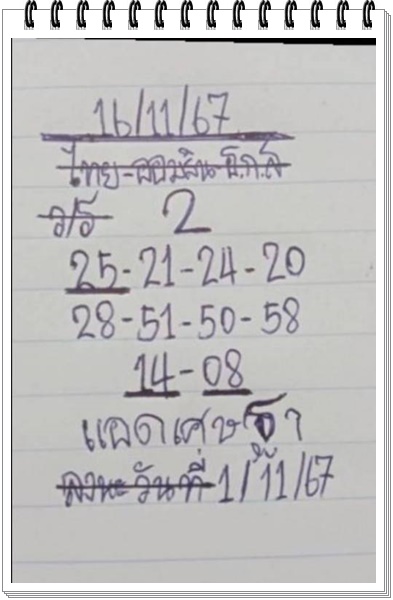 16/11/67
ไทย-ออมสิน-ธ.ก.ส
ว/ร 2
25-21-24-20
28-51-50-58
14-08
แปดเศษธา
ลงนะวันที่ 1/11/67